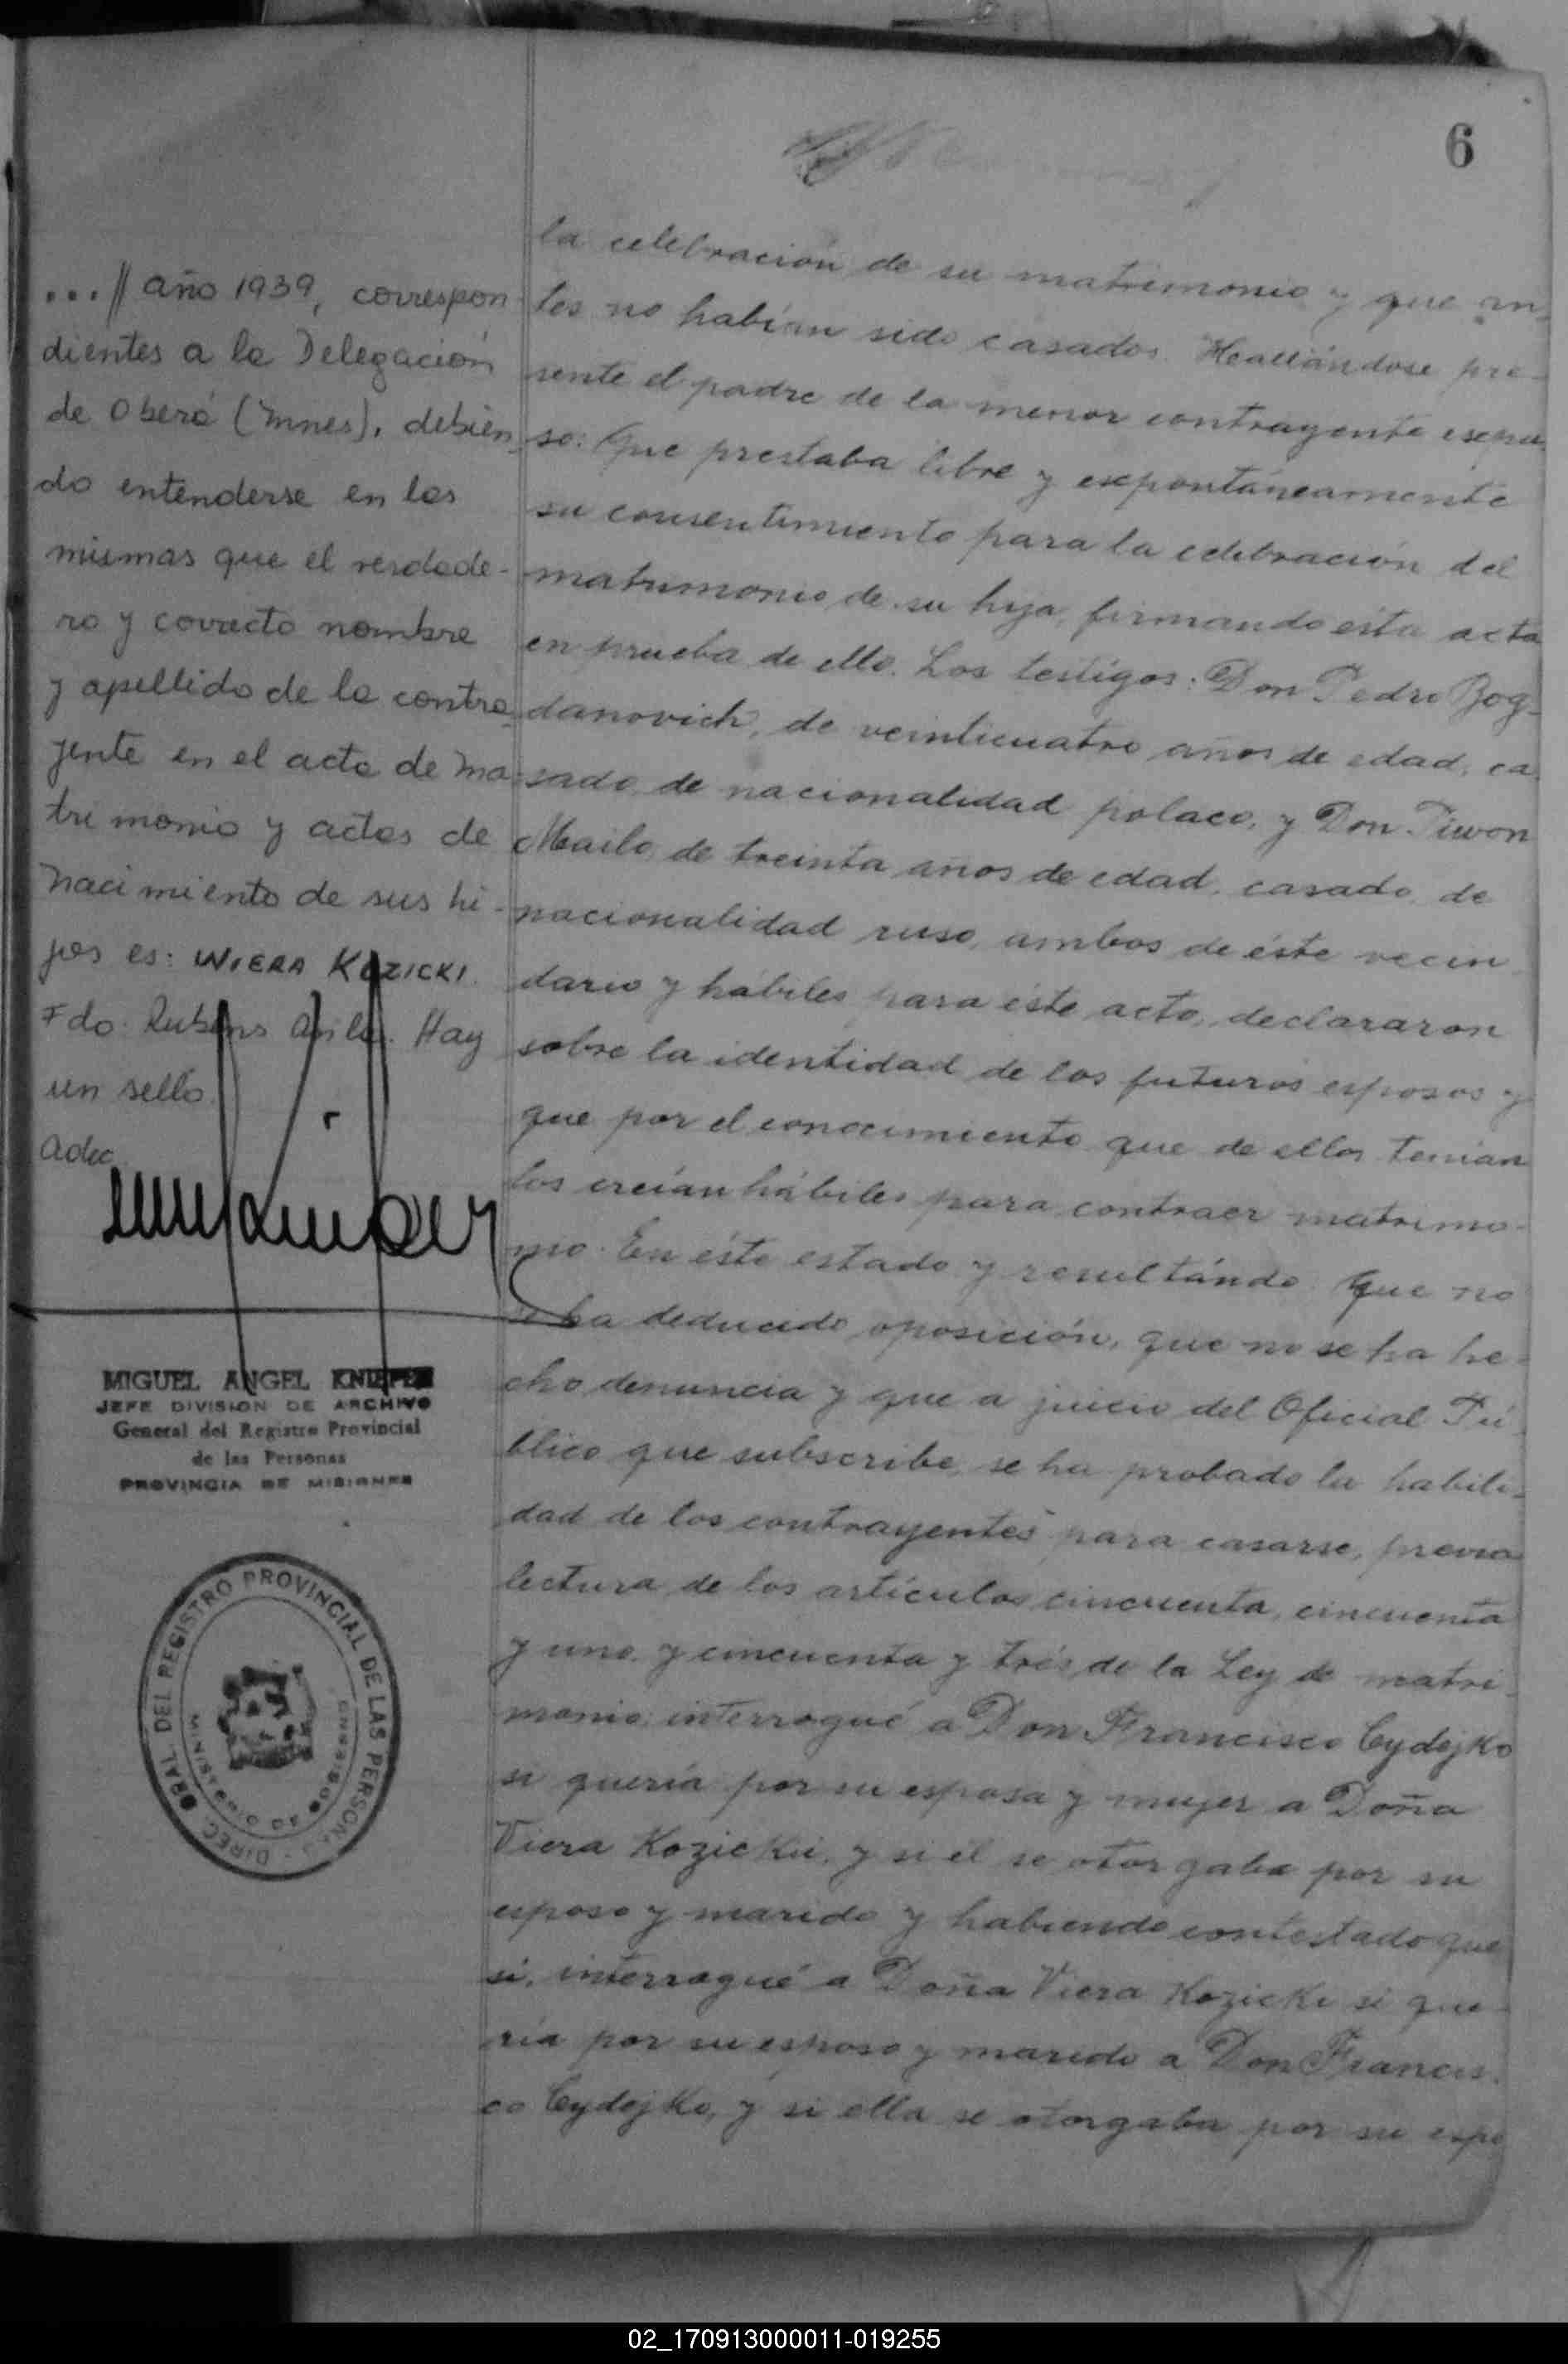 6
...// año 1939, correspon
dientes a la Delegación
de Oberá (Mnes), debien
do entenderse en las
mismas que el verdade-
ro y correcto nombre
y apellido de la contra
yente en el acta de ma
trimonio y actas de
nacimiento de sus hi-
jos es: WIERA KOZICKI.
Fdo. Rubens Avila. Hay
un sello.
MIGUEL ANGEL
JEFE DIVISION DE ARCHIVO
General del Registro Provincial
de las Personas
PROVINCIA DE MISIONES
DIREC. GRAL. DEL REGISTRO PROVINCIAL DE LAS PERSONAS
MINISTERIO DE GOBIERNO
la celebración de su matrimonio y que an
tes no habían sido casados. Heallándose pre-
sente el padre de la menor contrayente expu
so: Que prestaba libre y expontáneamente
su consentimiento para la celebración del
matrimonio de su hija, firmando esta acta
en prueba de ello. Los testigos: Don Pedro Bog-
danovich, de veinticuatro años de edad, ca
sado, de nacionalidad polaco, y Don Piwon
Mailo, de treinta años de edad, casado, de
nacionalidad ruso, ambos de éste vecin
dario y hábiles para éste acto, declararon
sobre la identidad de los futuros esposos y
que por el conocimiento que de ellos tenían
los creían hábiles para contraer matrimo-
nio. En éste estado y resultándo: Que no
se ha deducido oposición, que no se ha he-
cho denuncia y que a juicio del Oficial Pú
blico que subscribe, se ha probado la habili-
dad de los contrayentes para casarse, previa
lectura de los artículos cincuenta, cincuenta
y uno y cincuenta y trés de la Ley de matri-
monio; interrogué a Don Francisco Cydejko
si quería por su esposa y mujer a Doña
Viera Kozicki, y si él se otorgaba por su
esposo y marido y habiendo contestado que
si, interrogué a Doña Viera Kozicki si que-
ría por su esposo y marido a Don Francis
co Cydejko, y si ella se otorgaba por su espo
02_170913000011-019255